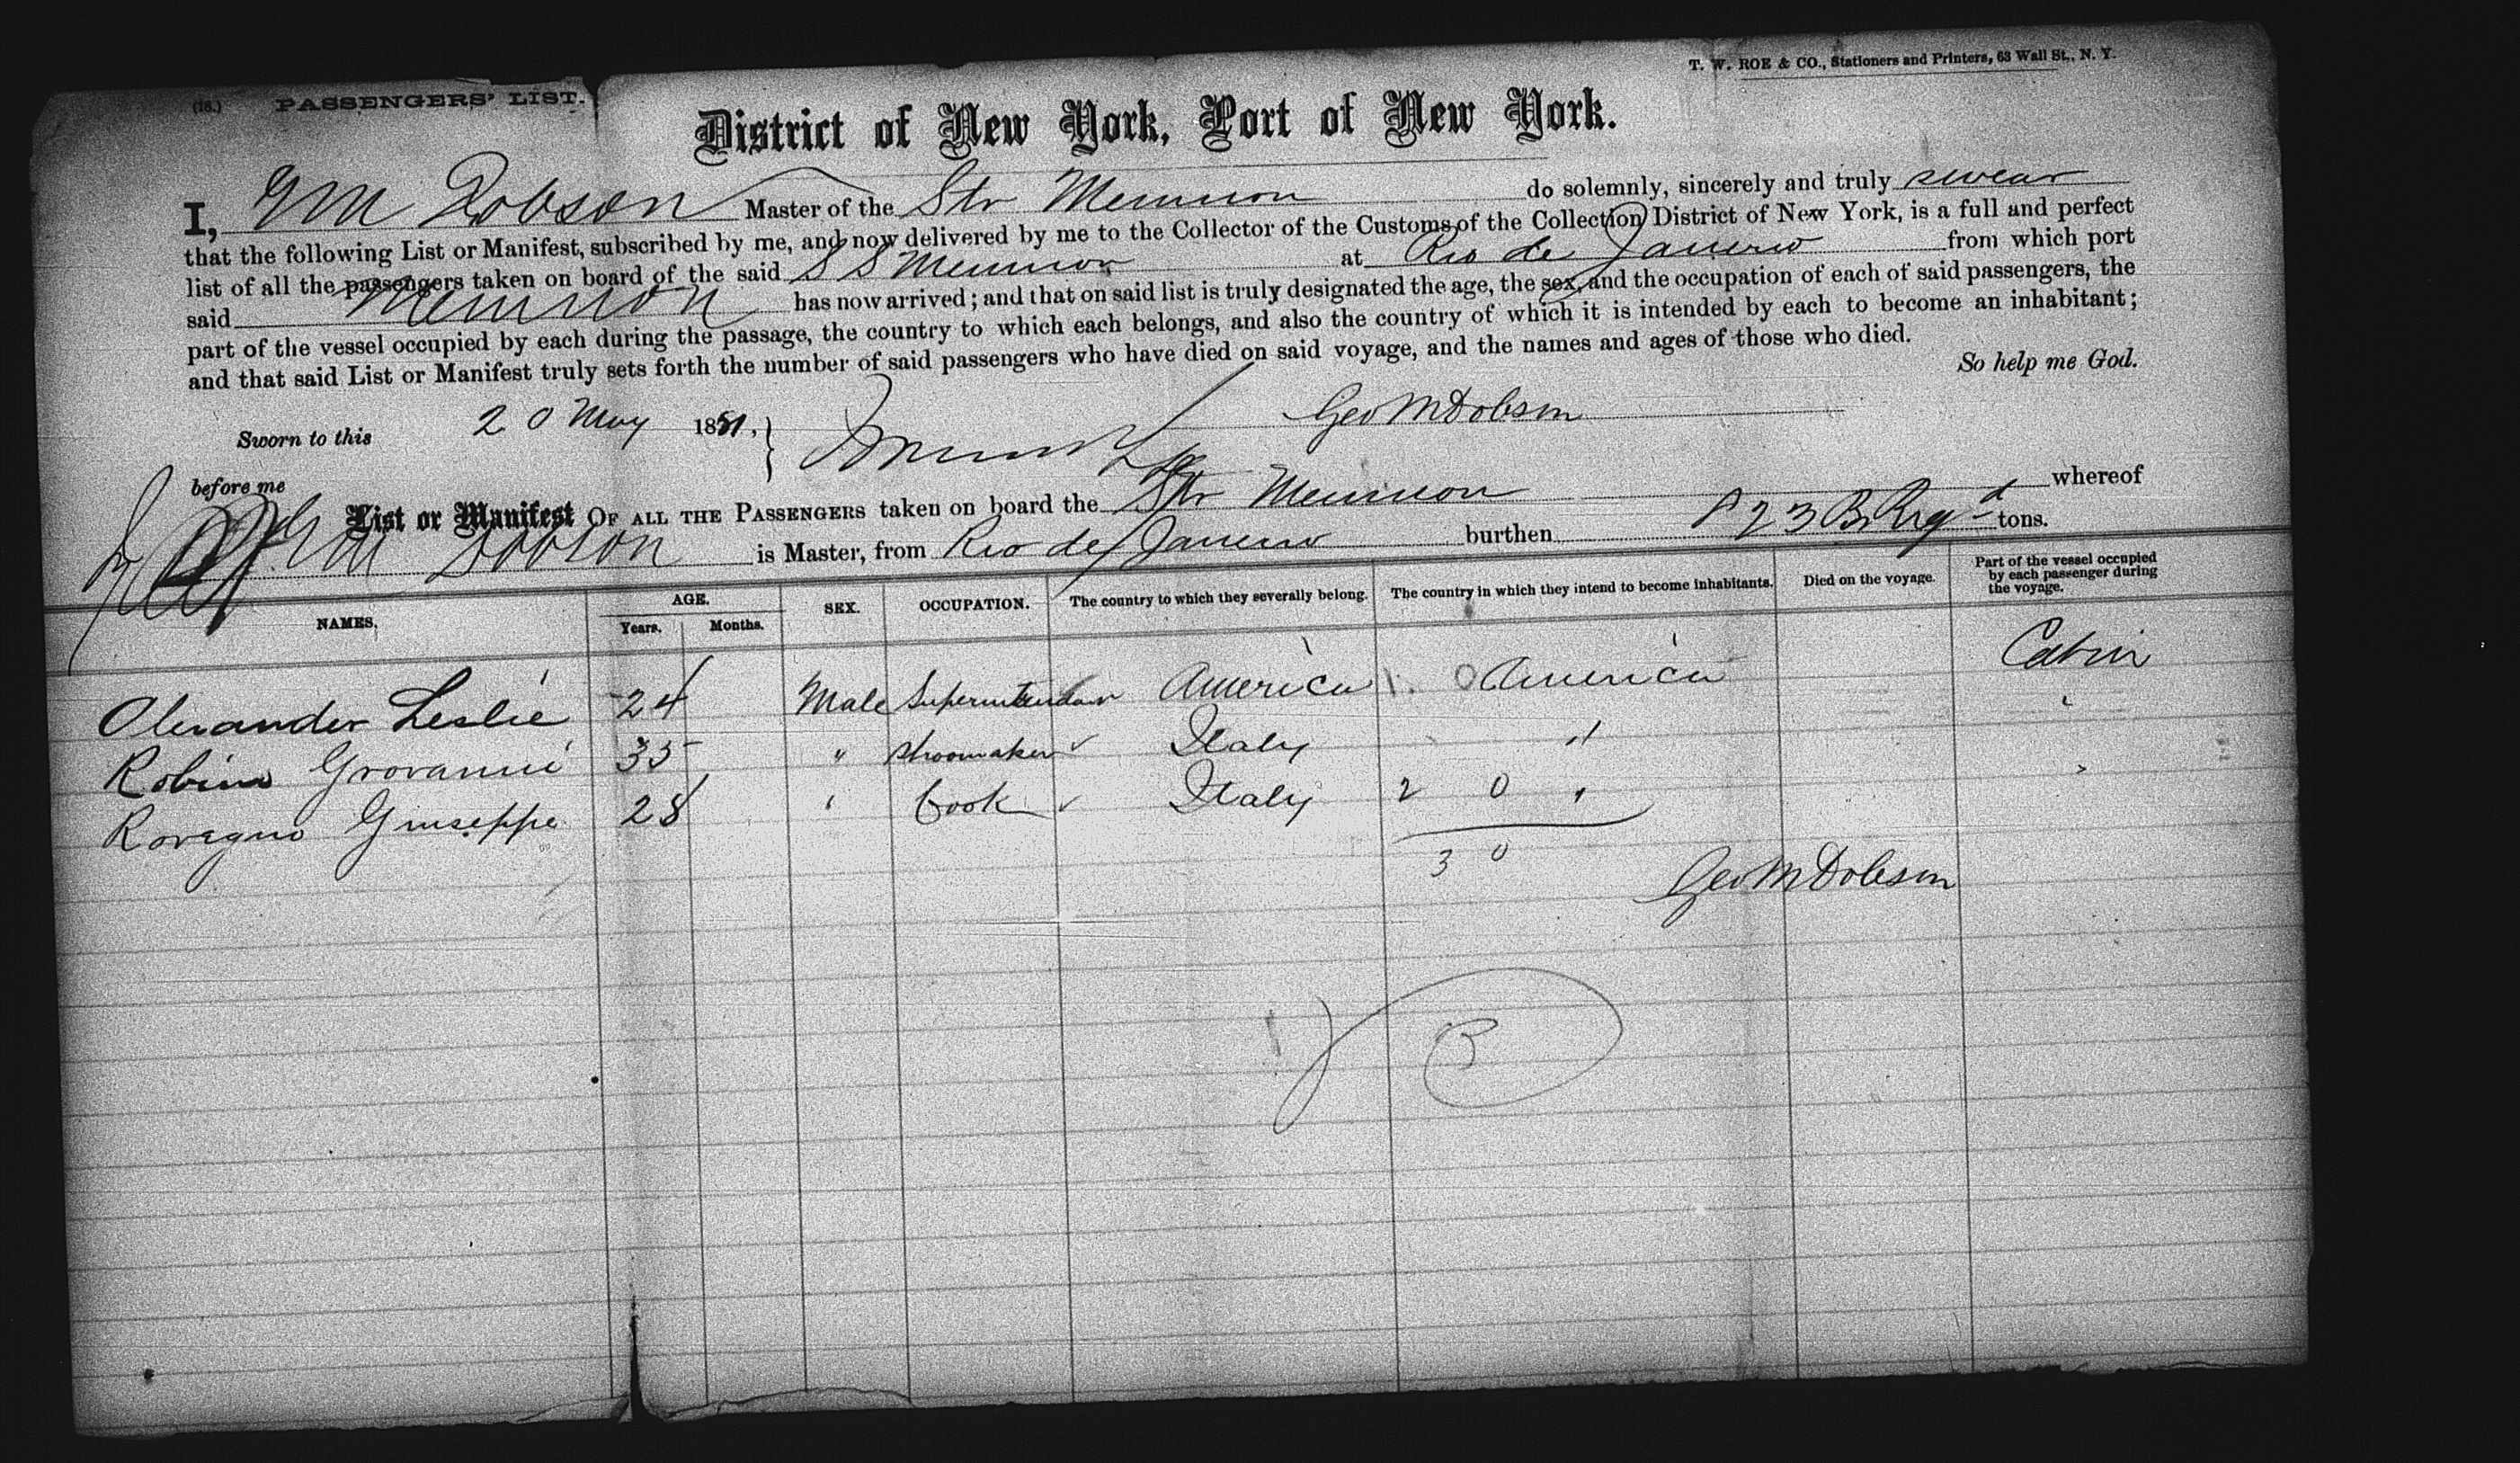 (18.) PASSENGERS' LIST.
T. W. ROE & CO., Stationers and Printers, 63 Wall St., N. Y.
District of New York, Port of New York.
I, G M Dobson Master of the Str Memnon do solemnly, sincerely and truly swear
that the following List or Manifest, subscribed by me, and now delivered by me to the Collector of the Customs of the Collection District of New York, is a full and perfect
list of all the passengers taken on board of the said S S Memnon at Rio de Janeiro from which port
said Memnon has now arrived; and that on said list is truly designated the age, the sex, and the occupation of each of said passengers, the
part of the vessel occupied by each during the passage, the country to which each belongs, and also the country of which it is intended by each to become an inhabitant;
and that said List or Manifest truly sets forth the number of said passengers who have died on said voyage, and the names and ages of those who died.
So help me God.
Sworn to this 20 May 1881,
Geo M Dobson
before me
List or Manifest OF ALL THE PASSENGERS taken on board the Str Memnon whereof
G M Dobson is Master, from Rio de Janeiro burthen tons.
NAMES. AGE. Years. Months. SEX. OCCUPATION. The country to which they severally belong. The country in which they intend to become inhabitants. Died on the voyage. Part of the vessel occupied by each passenger during the voyage.
Alexander Leslie 24 Male Superintendant America 1. 0 America Cabin
Robino Grovanni 35 " Shoomaker Italy "
Rovegno Giuseppe 28 " Cook Italy 2 0 "
3 0
Geo M Dobson
B